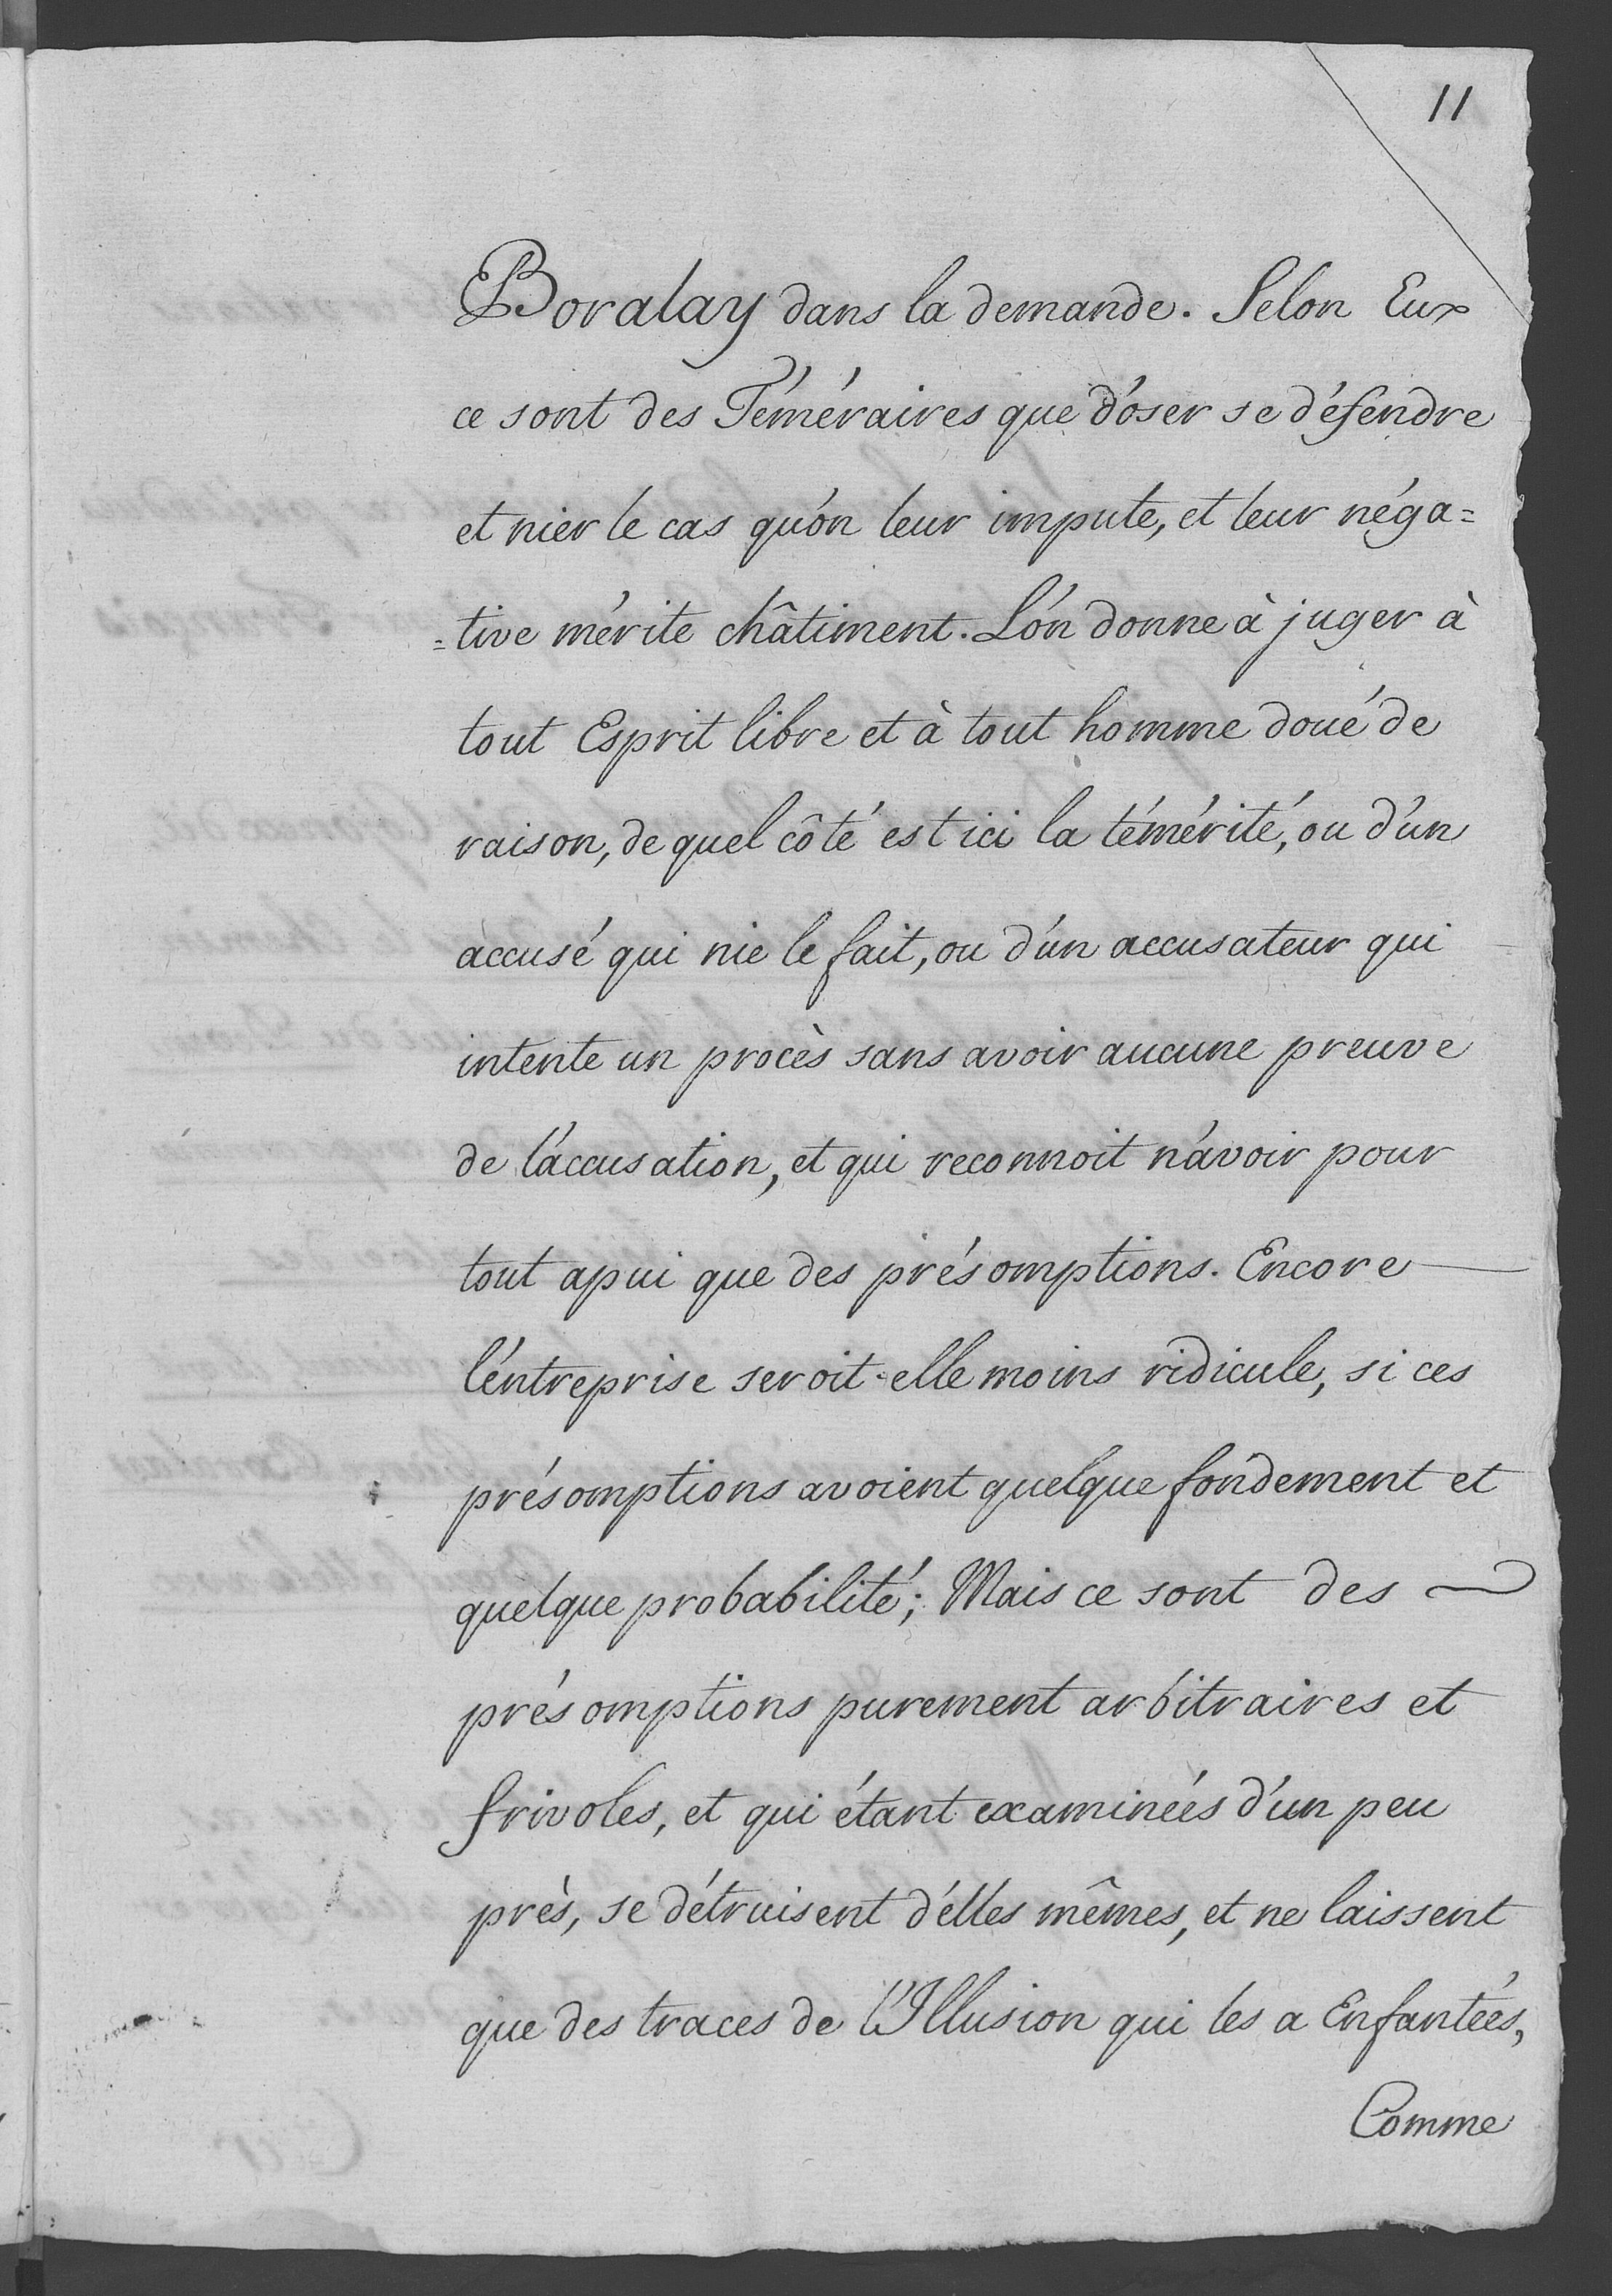 11
Boralay dans la demande. Selon Eux
ce sont des Téméraires que d'oser se défendre
et nier le cas qu'on leur impute, et leur néga=
=tive mérite châtiment. L'on donne à juger à
tout Esprit libre et à tout homme doué de
raison, de quel côté est ici la témérité, ou d'un
accusé qui nie le fait, ou d'un accusateur qui
intente un procès sans avoir aucune preuve
de l'accusation, et qui reconnoit n'avoir pour
tout apui que des présomptions. Encore
l'entreprise seroit-elle moins ridicule, si ces
présomptions avoient quelque fondement et
quelque probabilité; Mais ce sont des
présomptions purement arbitraires et
frivoles, et qui étant examinées d'un peu
près, se détruisent d'elles mêmes, et ne laissent
que des traces de l'Illusion qui les a Enfantées,
Comme